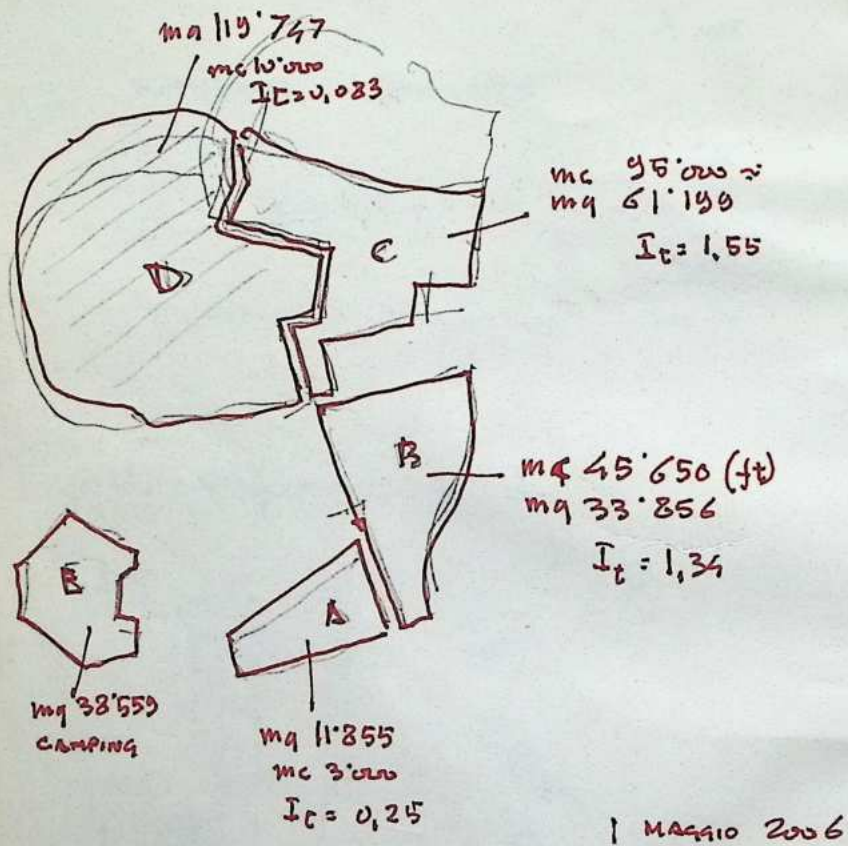 mq 119˙747
mc 10˙000
It=0,083
mc 95˙000 ≈
mq 61˙199
It= 1,55
C
D
B
mc 45˙650 (ft)
mq 33˙856
It = 1,34
E
A
mq 38˙559
CAMPING
mq 11˙855
mc 3˙000
It= 0,25
1 MAGGIO 2006